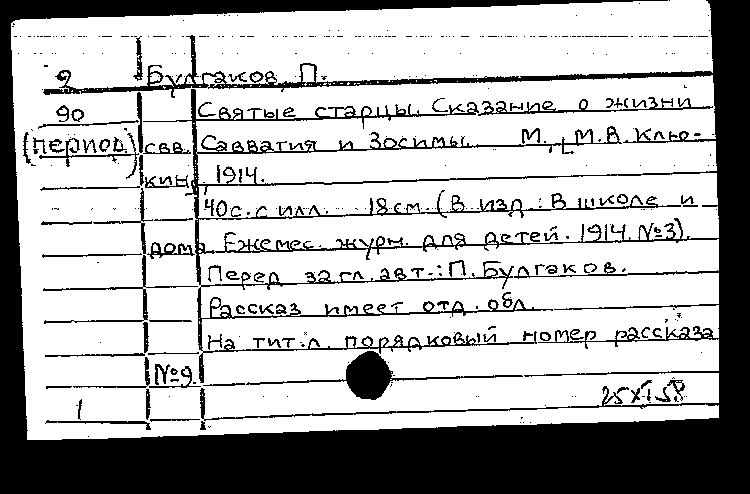 9 Булгаков, П.
90 Святые старцы. Сказание о жизни
(период.) свв. Савватия и Зосимы. М., М.В. Клю-
кин, 1914.
40с. с илл. 18см. (В изд.: В школе и
дома. Ежемес. журн. для детей. 1914. №3).
Перед загл. авт.: П. Булгаков.
Рассказ имеет отд. обл.
На тит. л. порядковый номер рассказа
№9.
1 25 XI 58